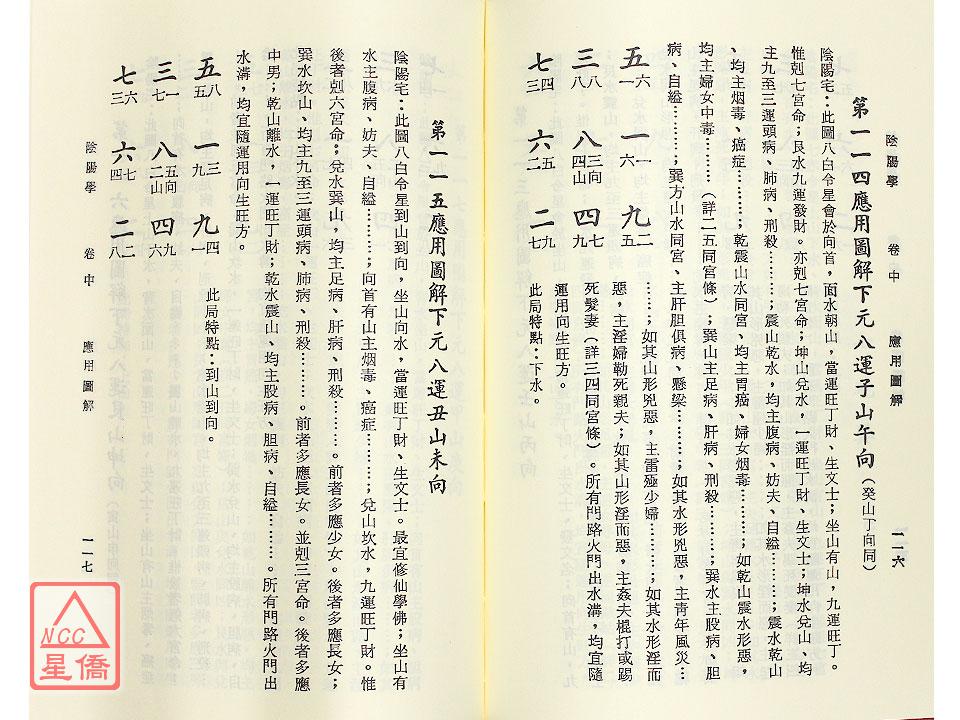 陰陽學　卷中　應用圖解　一一六
第一一四應用圖解下元八運子山午向（癸山丁向同）
陰陽宅：此圖八白令星會於向首，面水朝山，當運旺丁財、生文士；坐山有山，九運旺丁。
惟剋七宮命；艮水九運發財。亦剋七宮命；坤山兌水，一運旺丁財、生文士；坤水兌山、均
主九至三運頭病、肺病、刑殺………；震山乾水，均主腹病、妨夫、自縊………；震水乾山
、均主烟毒、癌症…………；乾震山水同宮、均主胃癌、婦女烟毒………；如乾山震水形惡，
均主婦女中毒………（詳二五同宮條）；巽山主足病、肝病、刑殺………；巽水主股病、胆
病、自縊………；巽方山水同宮、主肝胆俱病、懸梁………；如其水形兇惡，主青年風災…
……；如其山形兇惡，主雷殛少婦………；如其水形淫而
惡，主淫婦勒死親夫；如其山形淫而惡，主姦夫棍打或踢
死髮妻（詳三四同宮條）。所有門路火門出水溝，均宜隨
運用向生旺方。
此局特點：下水。
五 一六　一 六一　九 五二
三 八八　八 四三 山向　四 九七
七 三四　六 二五　二 七九
第一一五應用圖解下元八運丑山未向
陰陽宅：此圖八白令星到山到向，坐山向水，當運旺丁財、生文士。最宜修仙學佛；坐山有
水主腹病、妨夫、自縊………；向首有山主烟毒、癌症………；兌山坎水，九運旺丁財。惟
後者剋六宮命；兌水巽山，均主足病、肝病、刑殺………。前者多應少女。後者多應長女；
巽水坎山、均主九至三運頭病、肺病、刑殺………。前者多應長女。並剋三宮命。後者多應
中男；乾山離水，一運旺丁財；乾水震山、均主股病、胆病、自縊………。所有門路火門出
水溝，均宜隨運用向生旺方。
此局特點：到山到向。
五 五八　一 九三　九 一四
三 七一　八 二五 山向　四 六九
七 三六　六 四七　二 八二
陰陽學　卷中　應用圖解　一一七
NCC
星僑